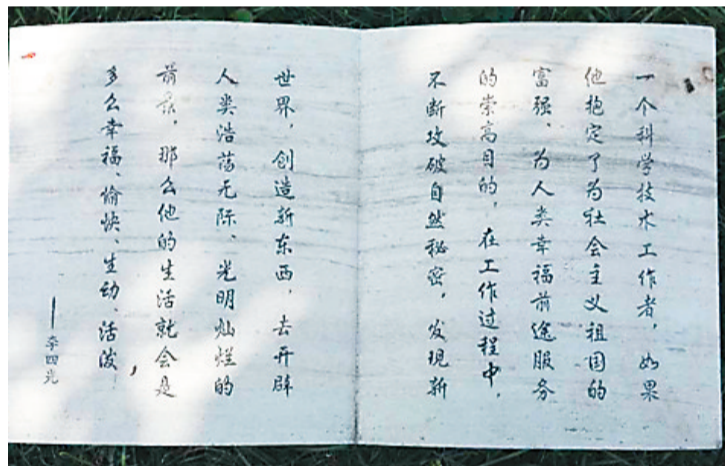 一个科学技术工作者，如果
他抱定了为社会主义祖国的
富强、为人类幸福前途服务
的崇高目的，在工作过程中，
不断攻破自然秘密，发现新
世界，创造新东西，去开辟
人类浩荡无际、光明灿烂的
前景，那么他的生活就会是
多么幸福、愉快、生动、活泼，
——李四光